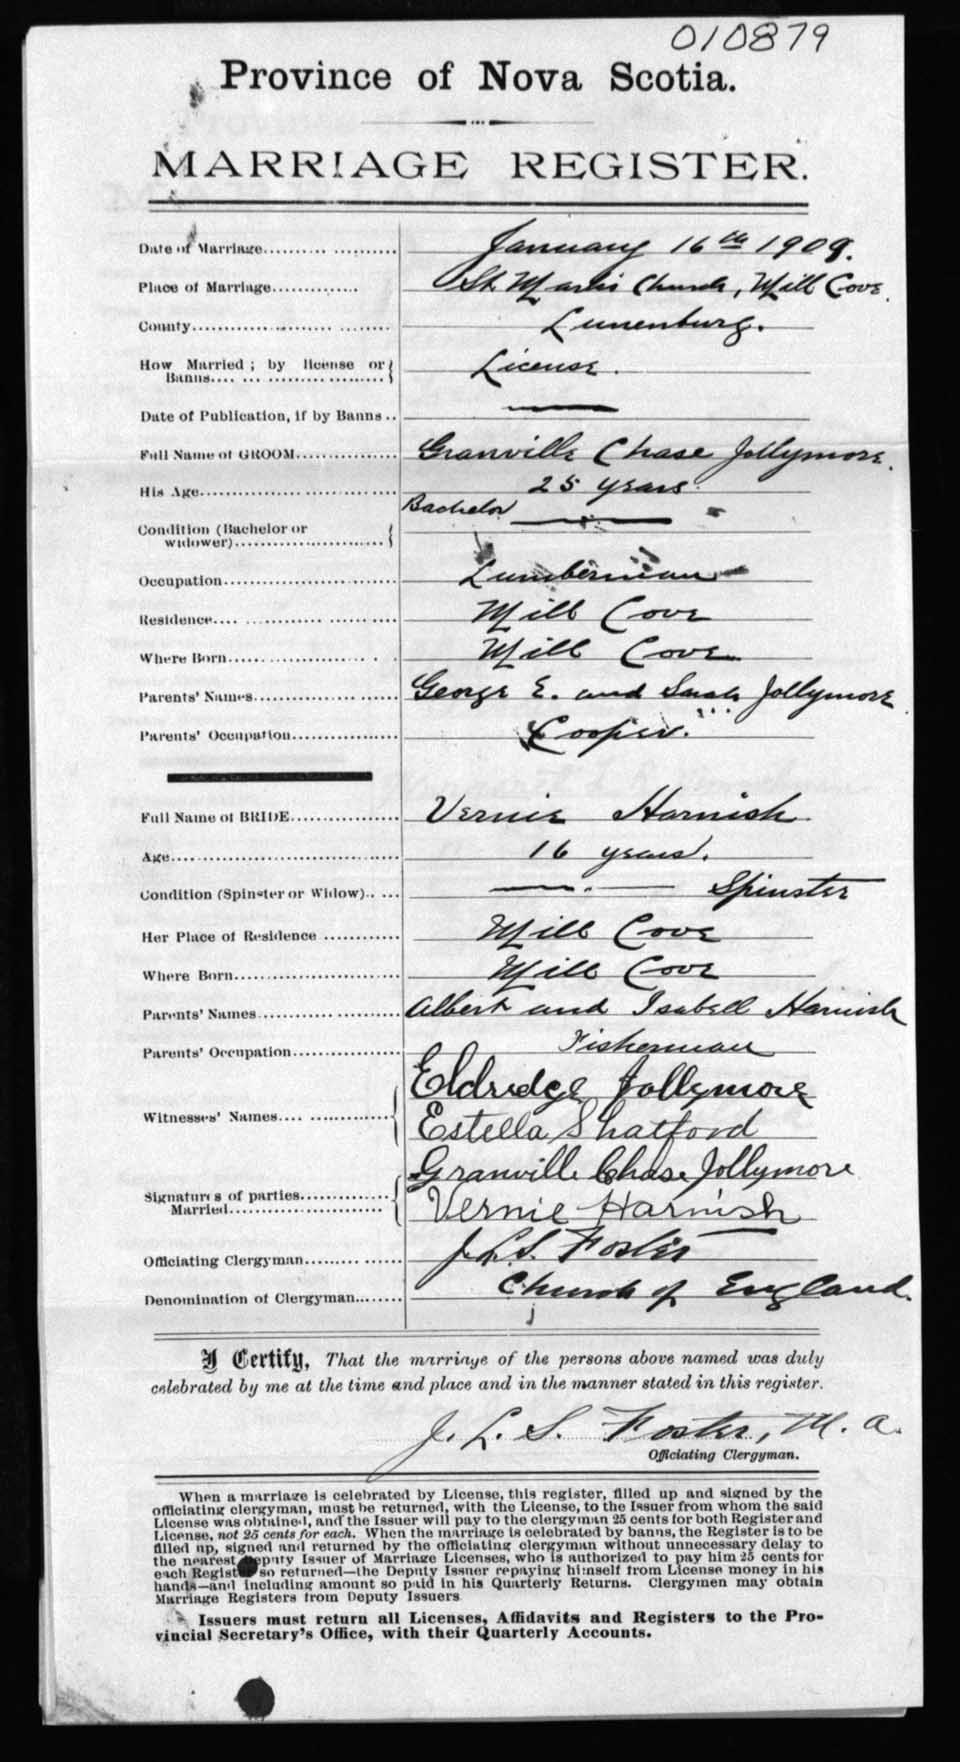 010879
Province of Nova Scotia.
MARRIAGE REGISTER.
Date of Marriage.......... January 16th 1909.
Place of Marriage.......... St. Mark's Church, Mill Cove.
County.......... Lunenburg.
How Married; by license or
Banns.......... License.
Date of Publication, if by Banns ..
Full Name of GROOM.......... Granville Chase Jollymore.
His Age.......... 25 years.
Condition (Bachelor or
widower).......... Bachelor
Occupation.......... Lumberman
Residence.......... Mill Cove
Where Born.......... Mill Cove
Parents' Names.......... George E. and Sarah Jollymore
Parents' Occupation.......... Cooper.
Full Name of BRIDE.......... Vernie Harnish
Age.......... 16 years.
Condition (Spinster or Widow).. .... Spinster
Her Place of Residence .......... Mill Cove
Where Born.......... Mill Cove
Parents' Names.......... Albert and Isabell Harnish
Parents' Occupation.......... Fisherman
Eldredge Jollymore
Witnesses' Names..........
Estella Shatford
Granville Chase Jollymore
Signatures of parties..........
Married.......... Vernie Harnish
Officiating Clergyman.......... J. L. S. Foster
Denomination of Clergyman....... Church of England.
I Certify, That the marriage of the persons above named was duly
celebrated by me at the time and place and in the manner stated in this register.
J. L. S. Foster, M. A.
Officiating Clergyman.
When a marriage is celebrated by License, this register, filled up and signed by the
officiating clergyman, must be returned, with the License, to the Issuer from whom the said
License was obtained, and the Issuer will pay to the clergyman 25 cents for both Register and
License, not 25 cents for each. When the marriage is celebrated by banns, the Register is to be
filled up, signed and returned by the officiating clergyman without unnecessary delay to
the nearest Deputy Issuer of Marriage Licenses, who is authorized to pay him 25 cents for
each Register so returned—the Deputy Issuer repaying himself from License money in his
hands—and including amount so paid in his Quarterly Returns. Clergymen may obtain
Marriage Registers from Deputy Issuers
Issuers must return all Licenses, Affidavits and Registers to the Pro-
vincial Secretary's Office, with their Quarterly Accounts.